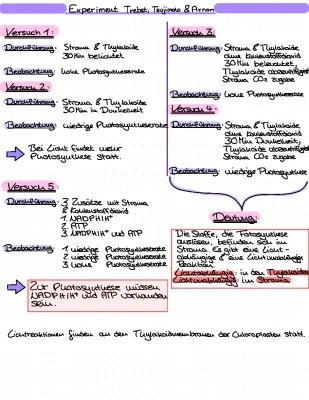 Experiment Trebst, Tsujimoto & Arnon
Versuch 1:
Durchführung: Stroma & Thylakoide
30 Min belichtet
Beobachtung: hohe Photosyntheserate
Versuch 2:
Durchführung: Stroma & Thylakoide
30 Min in Dunkelheit
Beobachtung: niedrige Photosyntheserate
Bei Licht findet mehr
Photosynthese statt.
Versuch 3:
Durchführung: Stroma & Thylakoide
ohne Kohlenstoffdioxid
30 Min beleuchtet,
Thylakoide abzentrifugiert
Stroma CO₂ zugabe
Beobachtung: hohe Photosyntheserate
Versuch 4:
Durchführung: Stroma & Thylakoide
ohne Kohlenstoffdioxid
30 Min Dunkelheit,
Thylakoide abzentrifugiert
Stroma CO₂ zugabe
Beobachtung: niedrige Photosynthese
Versuch 5:
Durchführung: 3 Zusätze mit Stroma
& Kohlenstoffdioxid
1. NADPH/H⁺
2. ATP
3. NADPH/H⁺ und ATP
Beobachtung: 1. niedrige Photosyntheserate
2. niedrige Photosyntheserate
3. hohe Photosyntheserate
Zur Photosynthese müssen
NADPH/H⁺ und ATP vorhanden
sein.
Deutung:
Die Stoffe, die Fotosynthese
auslösen, befinden sich im
Stroma. Es gibt eine Licht-
abhängige & eine Lichtunabhängige
Reaktion.
Lichtabhängig: in den Thylakoiden
Lichtunabhängig: im Stroma
Lichtreaktionen finden an den Thylakoidmembranen der Chloroplasten statt.